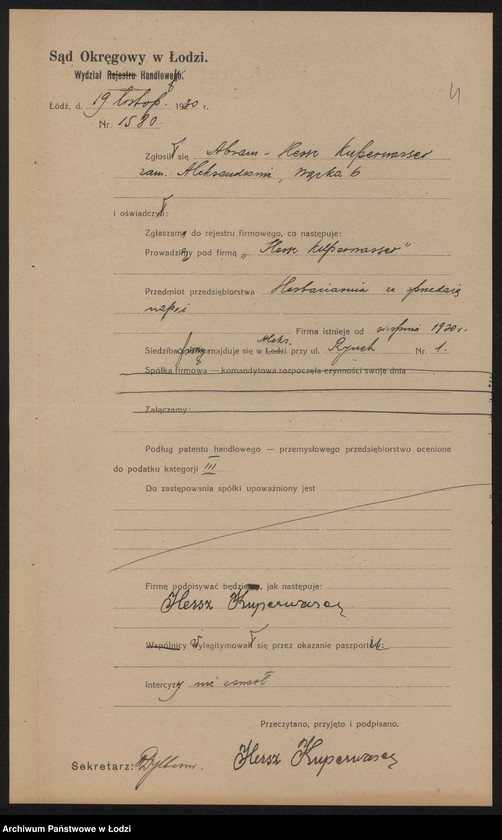 Sąd Okręgowy w Łodzi.
Wydział Rejestru Handlowego.
Łódź, d. 19 listop. 1930 r.
Nr. 1580.
4
Zgłosił się Abram - Hersz Kuperwasser
zam. Aleksandrowie, Wązka 6
i oświadczył:
Zgłaszam do rejestru firmowego, co następuje:
Prowadzimy pod firmą „Hersz Kuperwasser"
Przedmiot przedsiębiorstwa Herbaciarnia ze sprzedażą
napoi
Firma istnieje od sierpnia 1920 r.
Aleks.
Siedziba firmy znajduje się w Łodzi przy ul. Rynek Nr. 1.
Spółka firmowa — komandytowa rozpoczęła czynności swoje dnia
Załączamy:
Podług patentu handlowego — przemysłowego przedsiębiorstwo ocenione
do podatku kategorji III
Do zastępowania spółki upoważniony jest
Firmę podpisywać będzie, jak następuje:
Hersz Kuperwaser
Wspólnicy wylegitymowali się przez okazanie paszportu:
Intercyzy nie zawarł
Przeczytano, przyjęto i podpisano.
Sekretarz:
Hersz Kuperwaser
Archiwum Państwowe w Łodzi